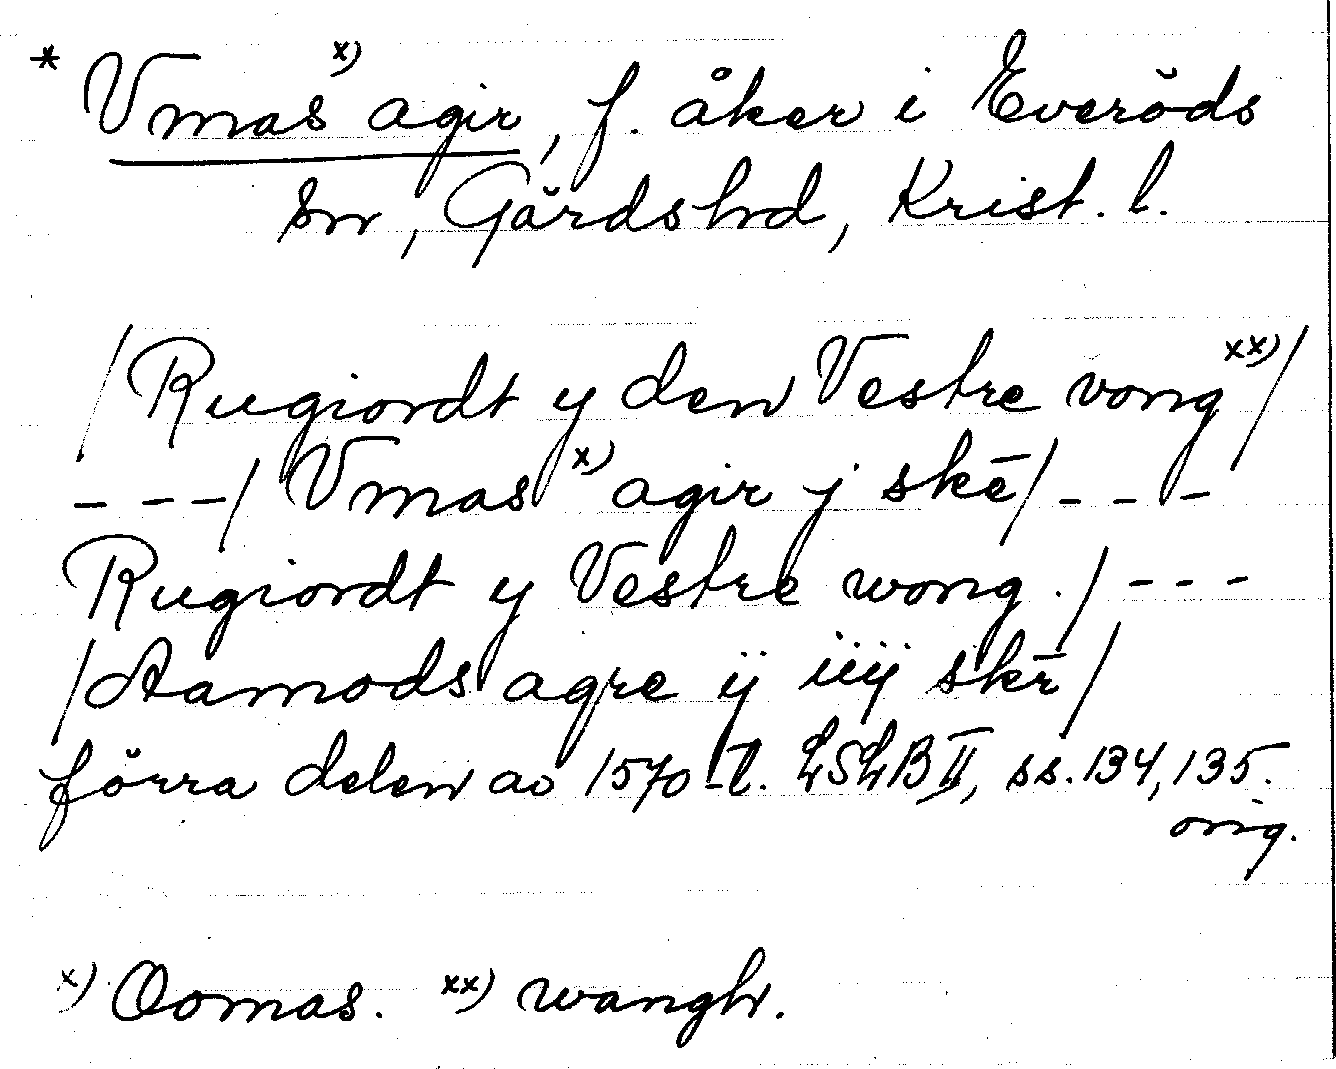 * Vmas x) agir, f. åker i Everöds
sn, Gärds hd, Krist. l.
/Rugiordt y den Vestre vong xx)/
- - -/ Vmas x) agir j skē/ - - -
Rugiordt y Vestre wong./ - - -
/Aamods agre ÿ iiij skē/
förra delen av 1570-t. LSLB II, ss. 134, 135.
orig.
x) Oomas. xx) wangh.